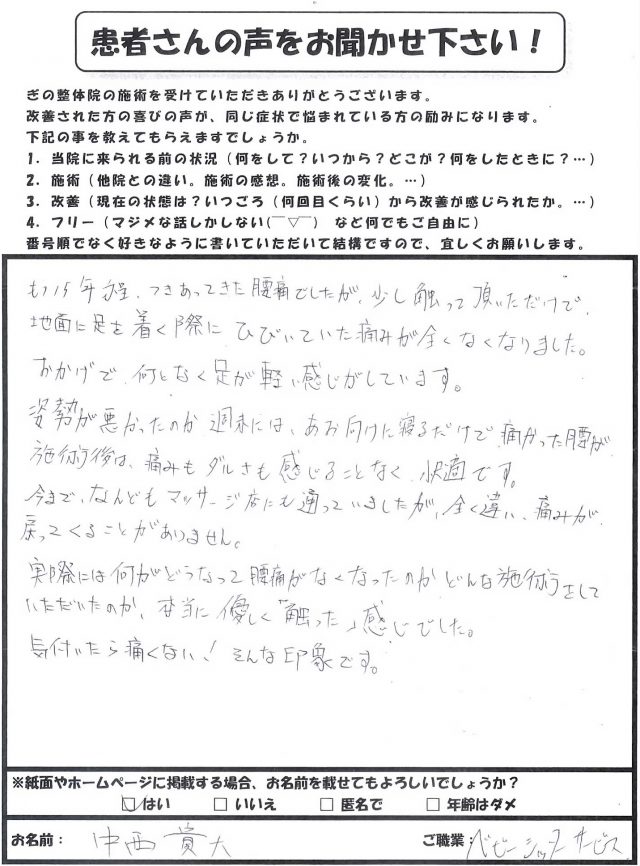 患者さんの声をお聞かせ下さい！
ぎの整体院の施術を受けていただきありがとうございます。
改善された方の喜びの声が、同じ症状で悩まれている方の励みになります。
下記の事を教えてもらえますでしょうか。
1．当院に来られる前の状況（何をして？いつから？どこが？何をしたときに？…）
2．施術（他院との違い。施術の感想。施術後の変化。…）
3．改善（現在の状態は？いつごろ（何回目くらい）から改善が感じられたか。…）
4．フリー（マジメな話しかしない(￣▽￣)　など何でもご自由に）
番号順でなく好きなように書いていただいて結構ですので、宜しくお願いします。
もう15年程、つきあってきた腰痛でしたが、少し触って頂いただけで、
地面に足を着く際に ひびいていた痛みが全くなくなりました。
おかげで、何となく足が軽い感じがしています。
姿勢が悪かったのか 週末には、あお向けに寝るだけで痛かった腰が
施術後は、痛みもダルさも感じることなく、快適です。
今まで、なんどもマッサージ店にも通っていましたが、全く違い、痛みが
戻ってくることがありません。
実際には何がどうなって腰痛がなくなったのか どんな施術をして
いただいたのか、本当に優しく「触った」感じでした。
気付いたら痛くない！ そんな印象です。
※紙面やホームページに掲載する場合、お名前を載せてもよろしいでしょうか？
☑はい　□ いいえ　□ 匿名で　□ 年齢はダメ
お名前： 中西 貴大　ご職業： ベビーシッターサービス